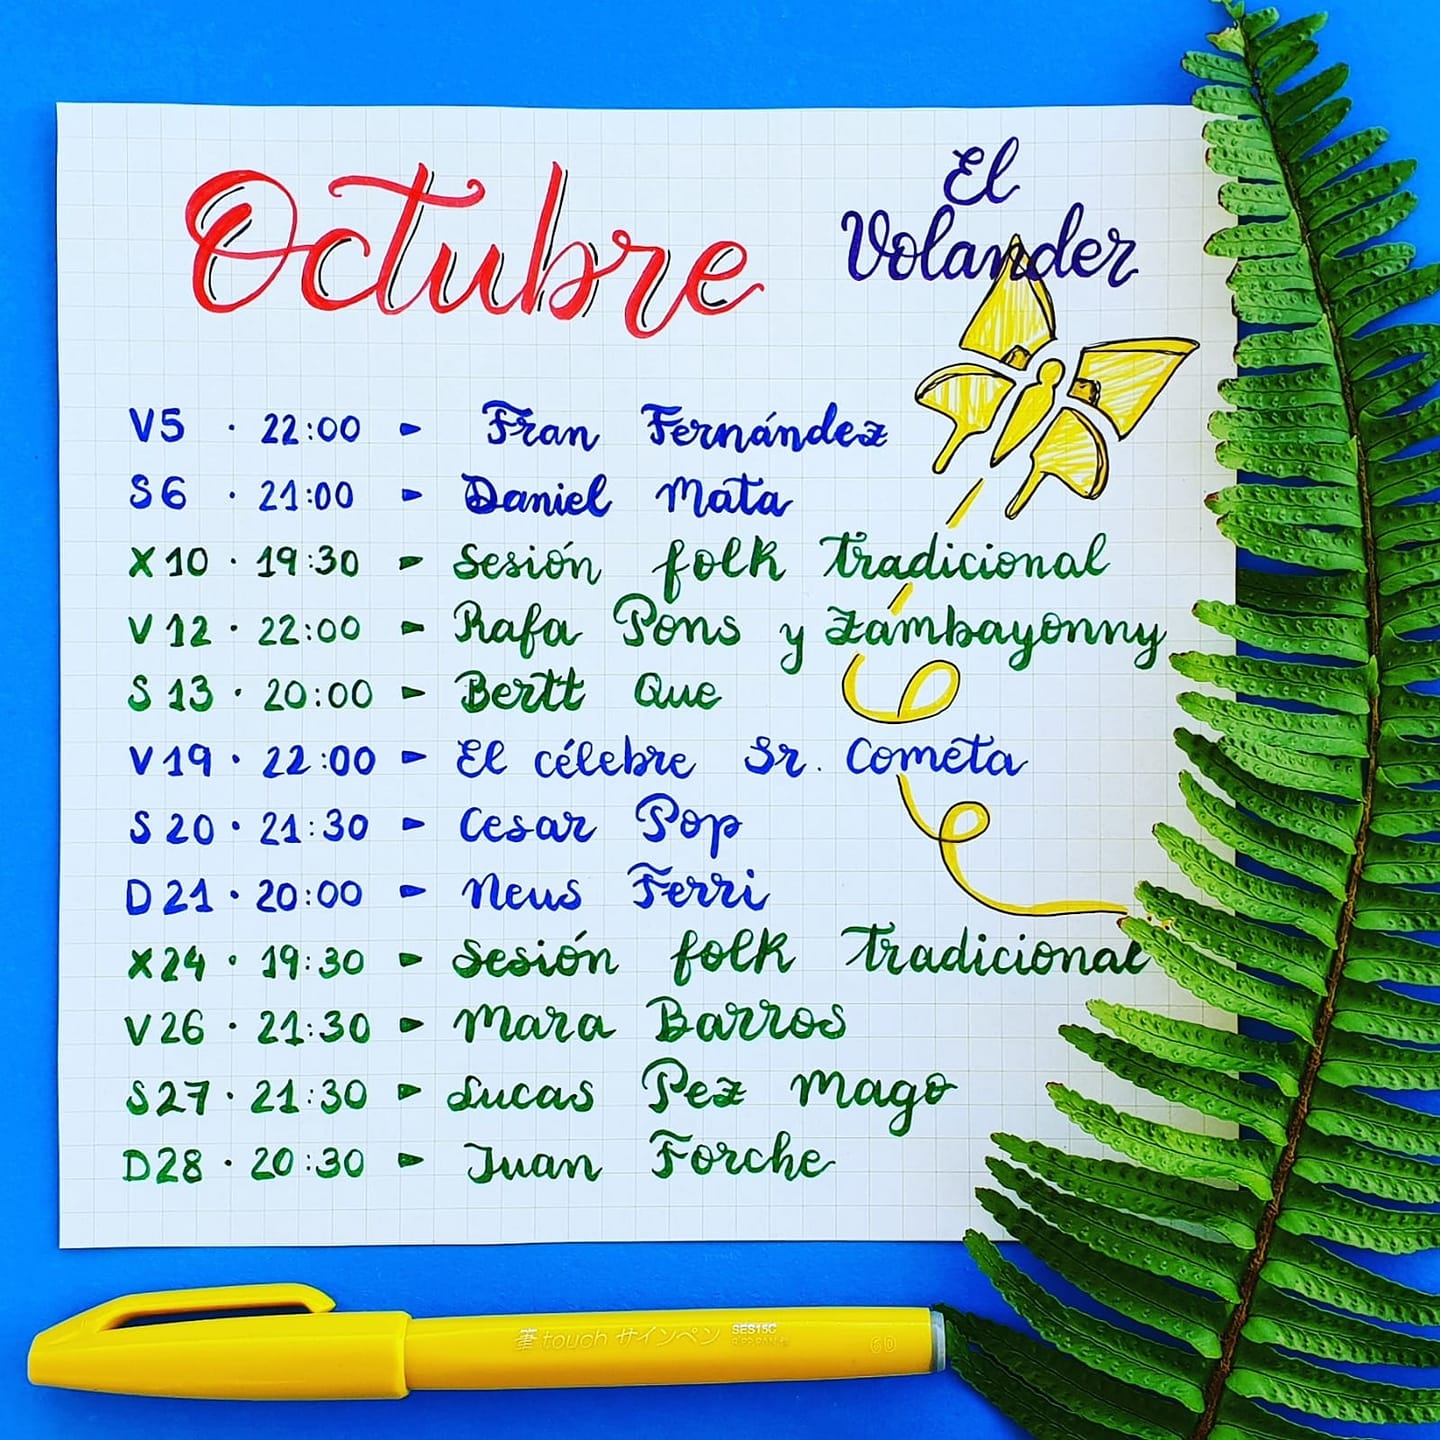 Octubre
El
Volander
V5 · 22:00 ► Fran Fernández
S6 · 21:00 ► Daniel Mata
X10 · 19:30 ► Sesión folk tradicional
V12 · 22:00 ► Rafa Pons y Zambayonny
S13 · 20:00 ► Bertt Que
V19 · 22:00 ► El célebre Sr. Cometa
S20 · 21:30 ► Cesar Pop
D21 · 20:00 ► Neus Ferri
X24 · 19:30 ► Sesión folk tradicional
V26 · 21:30 ► Mara Barros
S27 · 21:30 ► Lucas Pez Mago
D28 · 20:30 ► Juan Forche
筆 touch サインペン SES15C